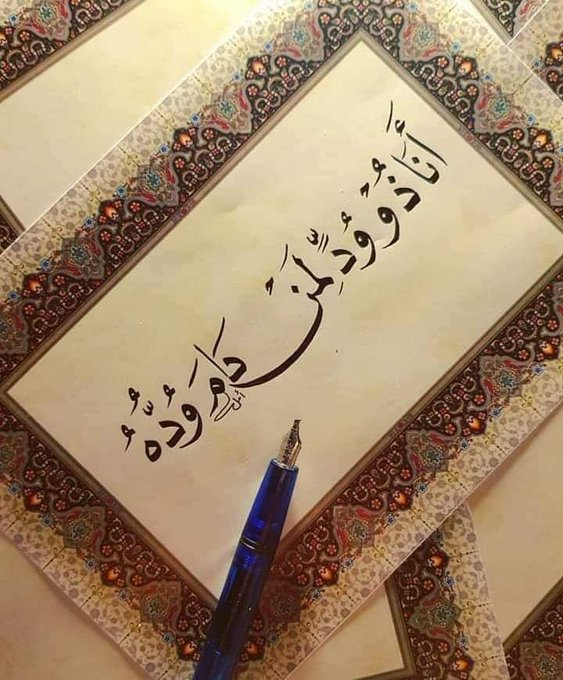 أَنَا ذُو وُدٍّ لِّمَنْ دَامَ وُدُّهُ